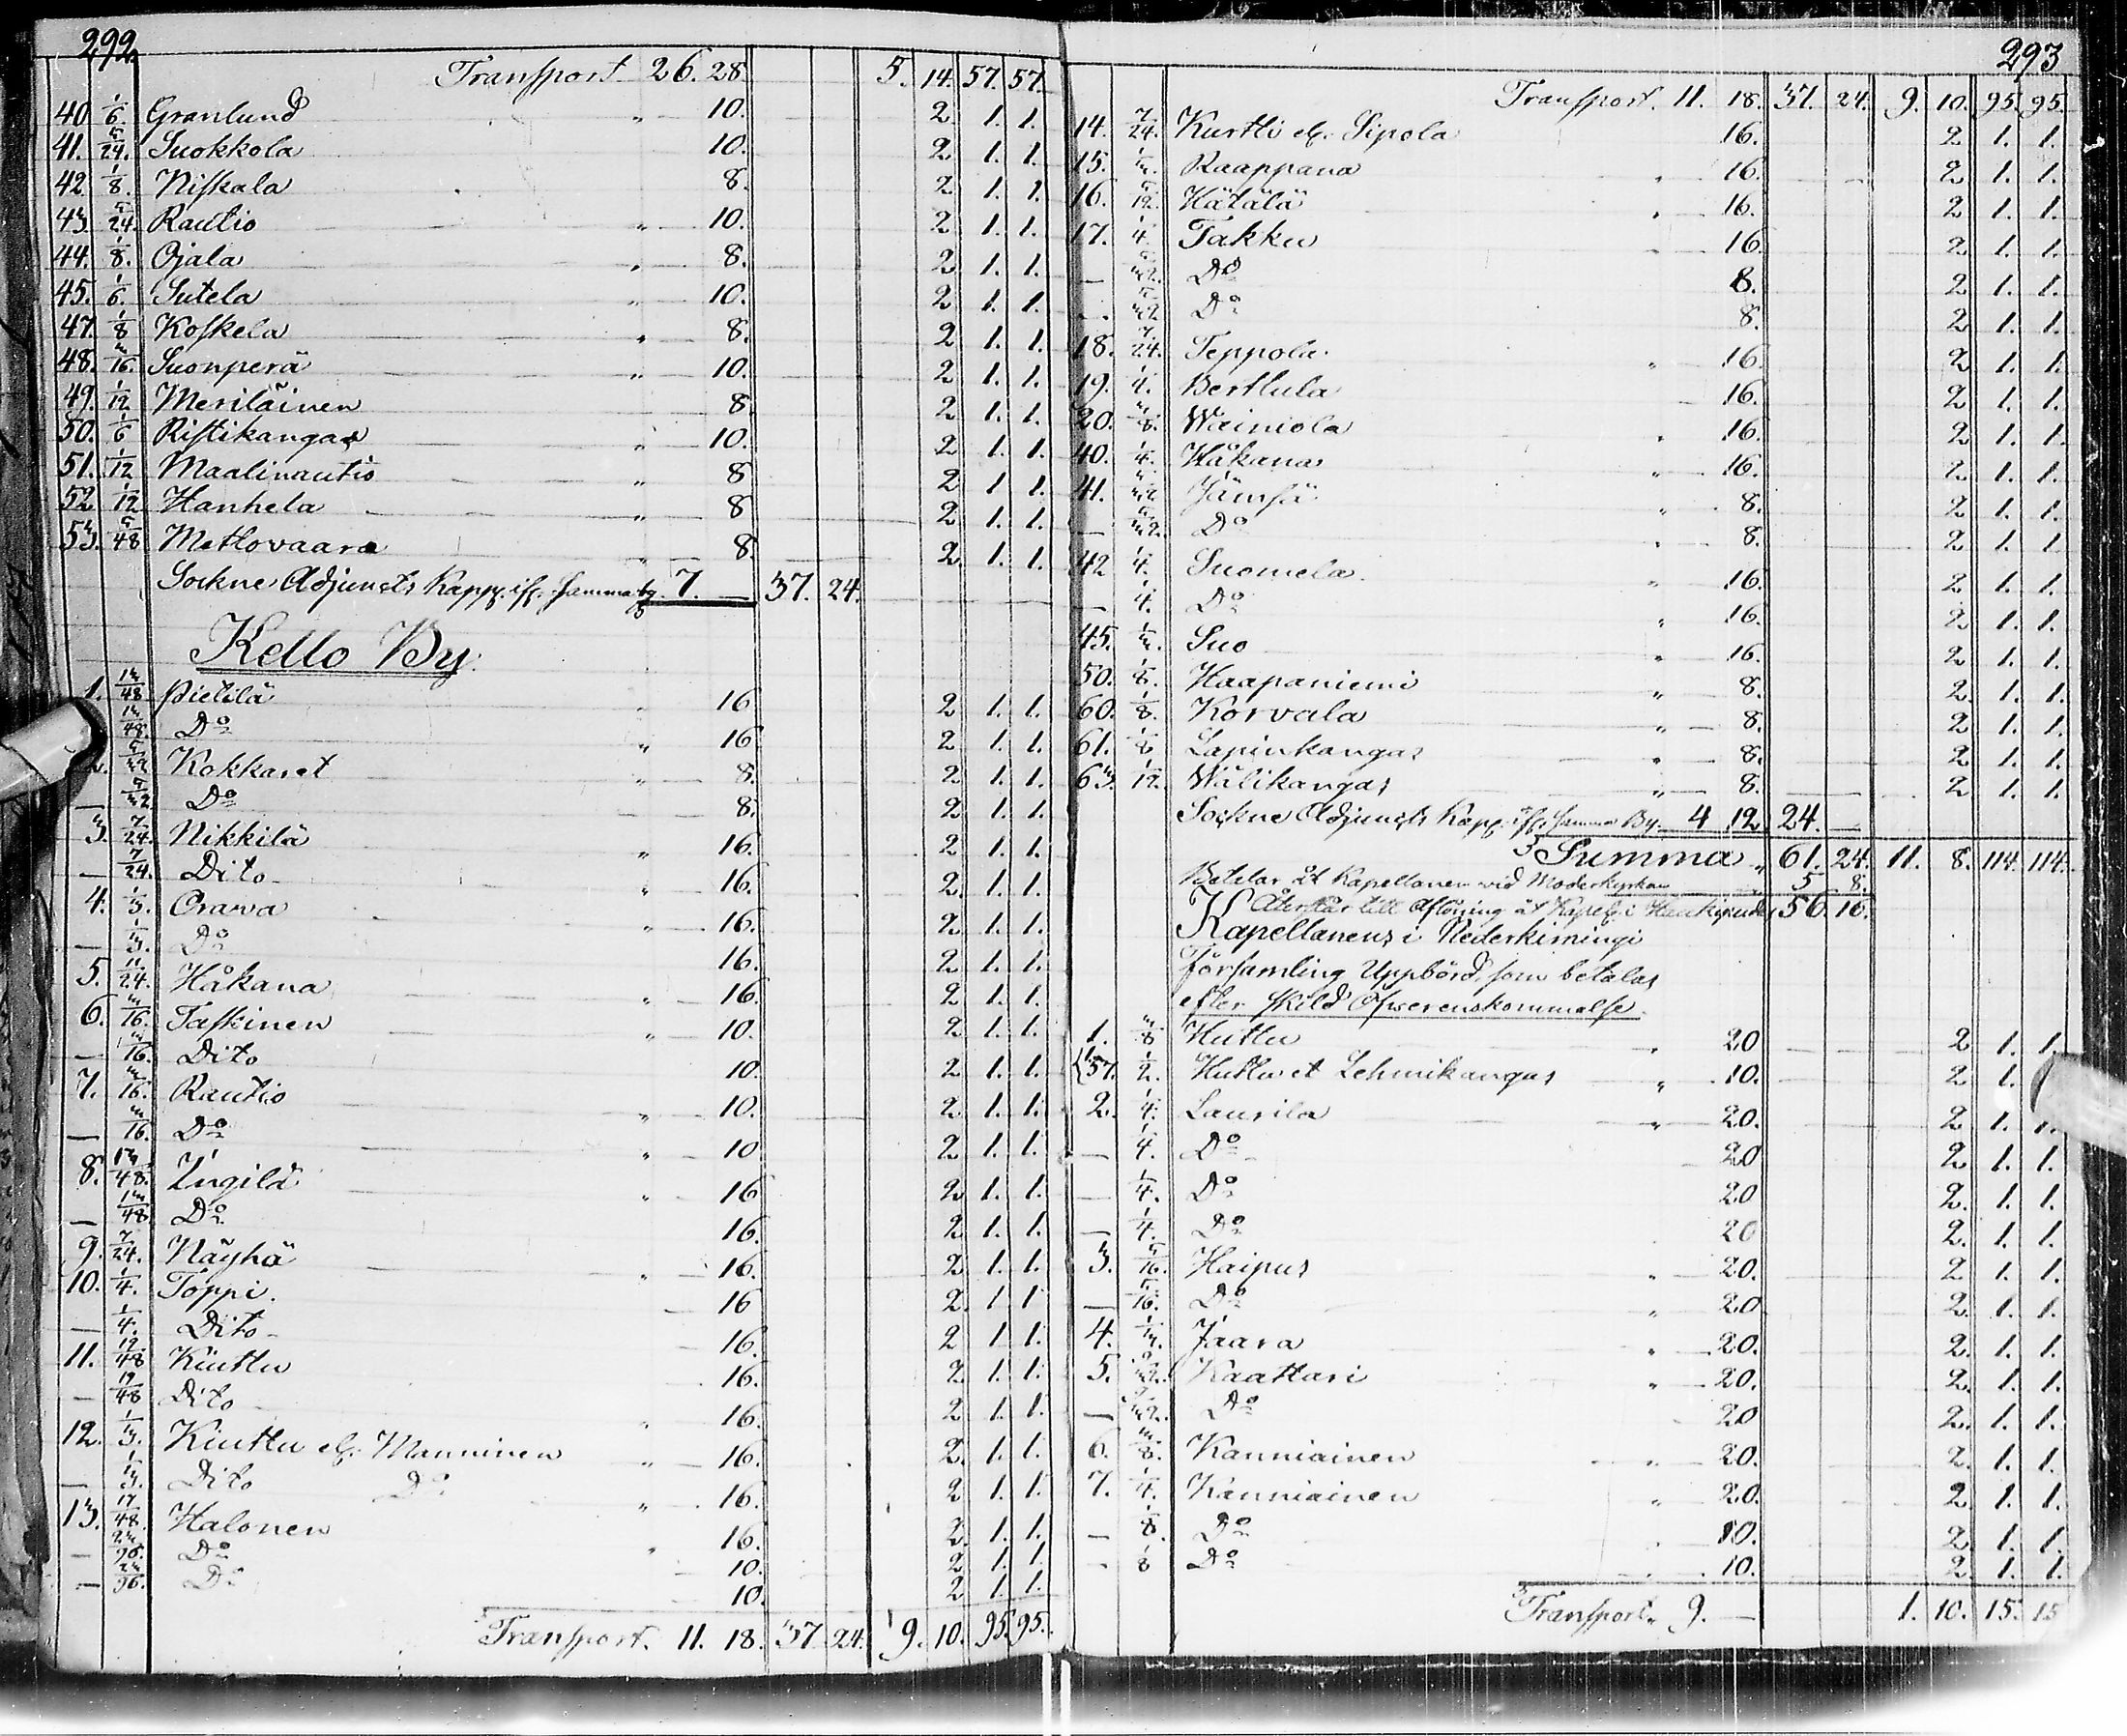 292
Transport 26. 28. 5. 14. 57. 57.
40. 1/6. Granlund " 10. 2. 1. 1.
41. 5/24. Suokkola 10. 2 1. 1.
42. 1/8. Niskala 8. 2 1. 1.
43. 5/24. Rautio " 10. 2 1. 1.
44. 1/8. Ojala " 8. 2 1. 1.
45. 1/6. Sutela " 10. 2 1. 1.
47. 1/8 Koskela " 8. 2 1. 1.
48. 3/16. Suonperä " 10. 2 1. 1.
49. 1/12 Meriläinen 8. 2 1. 1.
50. 1/6 Ristikangas " 10. 2 1. 1.
51. 1/12 Maalinautio " 8 2 1 1.
52 1/12 Hanhela " 8 2 1. 1.
53. 5/48 Metlovaara " 8. 2 1. 1.
Sockne Adjuncts Kapp. if. samma by 7. — 37. 24.
Kello By.
1. 13/48 Pietilä " 16 2 1. 1.
13/48. Do " 16 2 1. 1.
2. 5/32 Kokkaret " 8. 2 1. 1.
— 5/32 Do 8. 2 1. 1.
3. 7/24. Nikkilä " 16. 2 1. 1.
— 7/24. Dito " 16. 2. 1. 1.
4. 1/3. Orawa " 16. 2 1. 1.
— 1/3. Do 16. 2 1. 1.
5. 11/24. Håkana " 16. 2 1. 1.
6. 3/16. Taskinen " 10. 2 1. 1.
— 3/16. Dito 10. 2 1. 1.
7. 3/16. Rautio " 10. 2 1. 1.
— 3/16. Do " 10 2 1. 1.
8. 13/48. Yngilä " 16 2 1. 1.
— 13/48 Do 16. 2 1. 1.
9. 7/24. Näyhä " 16. 2 1. 1.
10. 1/4. Toppi. 16 2. 1 1
— 1/4. Dito 16. 2 1 1.
11. 19/48 Kiuttu 16. 2 1. 1.
— 19/48 Dito " 16. 2 1. 1.
12. 1/3. Kiuttu el. Manninen " 16. 2. 1. 1.
— 1/3. Dito Do " 16. 2 1. 1.
13. 17/48. Halonen " 16. 2. 1. 1.
— 23/96. Do 10. 2 1. 1.
— 23/96. Do 10. 2 1. 1.
Transport. 11. 18. 37 24. 9. 10. 95. 95.
293
Transport. 11. 18. 37. 24. 9. 10. 95. 95.
14. 7/24. Kurtti el. Sipola 16. 2 1. 1.
15. 1/3. Raappana " 16. 2 1. 1.
16. 5/12. Hätälä " 16. 2 1. 1.
17. 1/4. Takku 16. 2 1. 1.
— 5/32. Do 8. 2 1. 1.
— 5/32 Do 8. 2 1. 1.
18. 7/24. Teppola. " 16 2 1. 1.
19. 1/4. Berttula 16. 2 1. 1.
20. 3/8. Wainiola " 16. 2 1. 1.
40. 1/4. Håkana " 16. 2 1. 1.
41. 5/32 Jämsä " 8. 2 1. 1.
— 5/32. Do " 8. 2 1. 1.
42 1/4. Suomela. " 16. 2 1. 1.
— 1/4. Do " 16. 2 1. 1.
45. 1/3. Suo " 16. 2 1. 1.
50. 1/8. Haapaniemi " 8. 2. 1. 1.
60. 1/8. Korvala " 8. 2 1. 1.
61. 1/8 Lapinkangas " 8. 2 1. 1.
63. 1/12. Wälikangas " 8. 2 1. 1.
Sockne Adjuncts Kapp. if. samma By 4 12 24. —
Summa " 61. 24. 11. 8. 114. 114.
Betalar åt Kapellanen vid Moderkyrkan 5 8.
Återstår till Aflöning åt Kapel. i Haukipudas 56. 16.
Kapellanens i Nederkimingi
församling Uppbörd, som betalas
efter skild Öfverenskommelse.
1. 3/8 Huttu " 20 2 1. 1.
57. 1/2. Huttu et Lehmikangas " 10. 2 1.
2. 1/4. Laurila " 20. 2 1. 1.
— 1/4. Do 20 2 1. 1.
— 1/4. Do 20 2. 1. 1.
— 1/4. Do 20 2. 1. 1.
3. 5/16. Haipus " 20. 2 1. 1.
— 5/16. Do " 20 2. 1. 1.
4. 1/3. Jaara " 20. 2. 1. 1.
5. 9/32. Kaattari " 20. 2. 1. 1.
— 9/32. Do 20 2. 1. 1.
6. 3/8. Kanniainen " 20. 2. 1. 1.
7. 1/4. Kanniainen " 20. 2 1. 1.
— 1/8. Do 10. 2 1. 1.
— 1/8 Do 10. 2 1. 1.
Transport. 9. — 1. 10. 15. 15